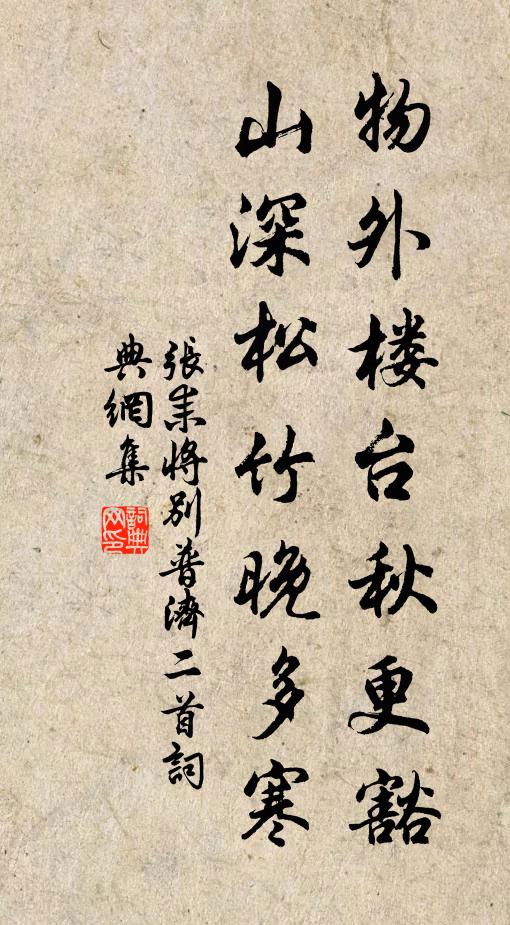 物外楼台秋更豁
山深松竹晚多寒
張耒将别普濟二首詞
典網集
詞典网印